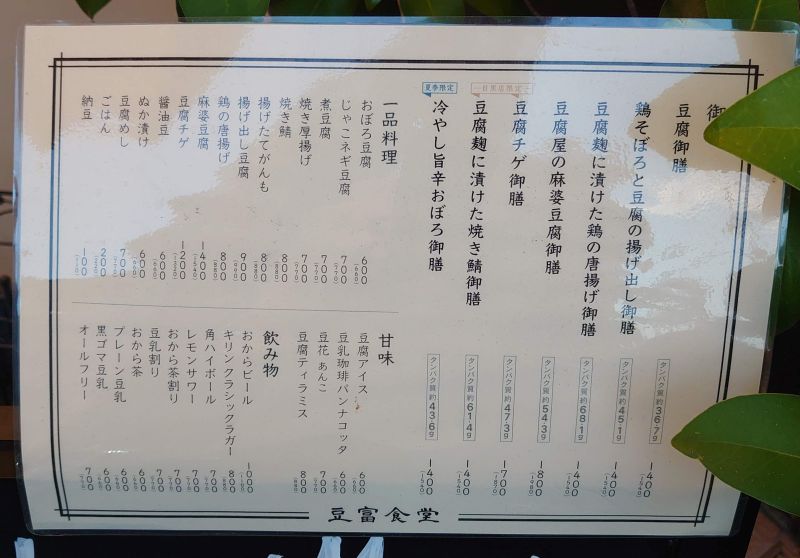 御
豆腐御膳 タンパク質 約36.7g 1400 (1540)
鶏そぼろと豆腐の揚げ出し御膳 タンパク質 約45.1g 1400 (1540)
豆腐麹に漬けた鶏の唐揚げ御膳 タンパク質 約68.1g 1400 (1540)
豆腐屋の麻婆豆腐御膳 タンパク質 約54.3g 1800 (1980)
豆腐チゲ御膳 タンパク質 約47.3g 1700 (1870)
目黒店限定
豆腐麹に漬けた焼き鯖御膳 タンパク質 約61.4g 1400 (1540)
夏季限定
冷やし旨辛おぼろ御膳 タンパク質 約43.6g 1400 (1540)
一品料理
おぼろ豆腐 600 (660)
じゃこネギ豆腐 700 (770)
煮豆腐 700 (770)
焼き厚揚げ 700 (770)
焼き鯖 800 (880)
揚げたてがんも 800 (880)
揚げ出し豆腐 900 (990)
鶏の唐揚げ 800 (880)
麻婆豆腐 1400 (1540)
豆腐チゲ 1200 (1320)
醤油豆 600 (660)
ぬか漬け 600 (660)
豆腐めし 700 (770)
ごはん 200 (220)
納豆 100 (110)
甘味
豆腐アイス 600 (660)
豆乳珈琲パンナコッタ 600 (660)
豆花 あんこ 700 (770)
豆腐ティラミス 800 (880)
飲み物
おからビール 1000 (1100)
キリンクラシックラガー 800 (880)
角ハイボール 700 (770)
レモンサワー 700 (770)
おから茶割り 700 (770)
豆乳割り 700 (770)
おから茶 600 (660)
プレーン豆乳 600 (660)
黒ゴマ豆乳 600 (660)
オールフリー 700 (770)
豆富食堂